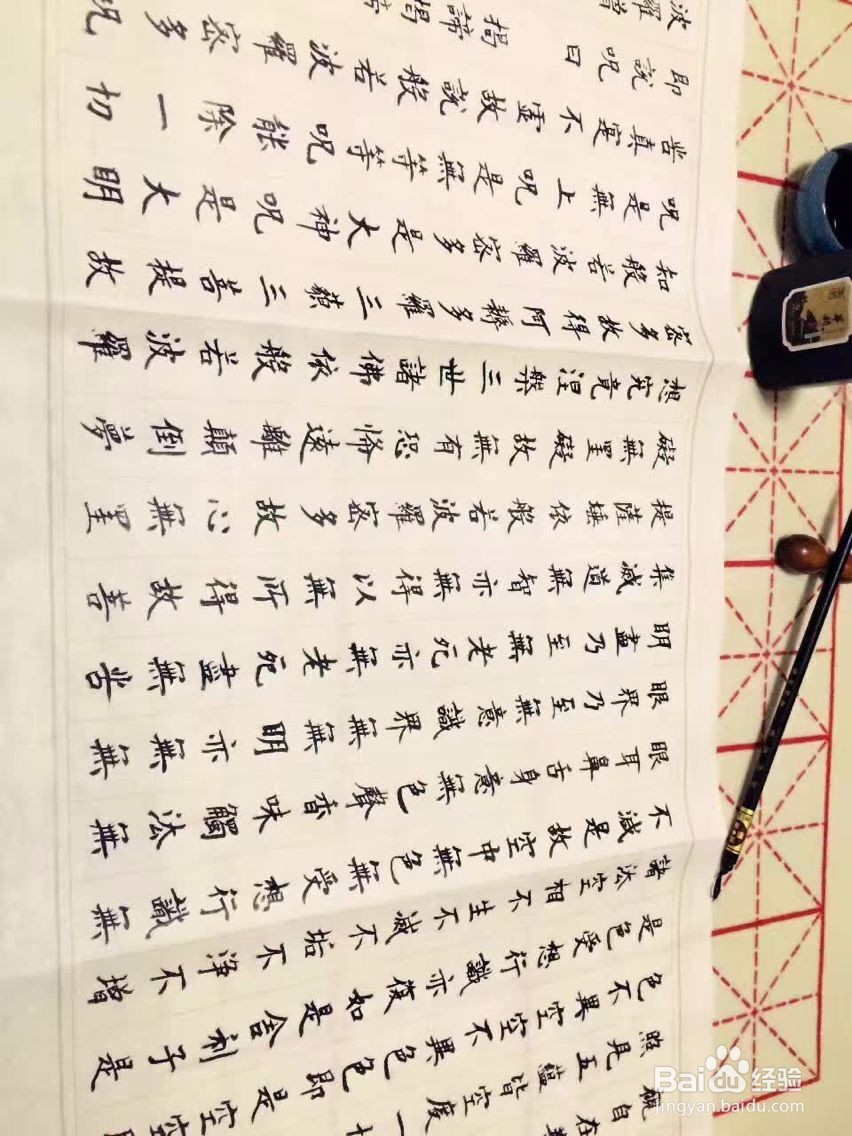 觀自在
照見五蘊皆空度一
色不異空空不異色色即是空空
是色受想行識亦復如是舍利子是
諸法空相不生不滅不垢不淨不增
不減是故空中無色無受想行識無
眼耳鼻舌身意無色聲香味觸法無
眼界乃至無意識界無無明亦無無
明盡乃至無老死亦無老死盡無苦
集滅道無智亦無得以無所得故菩
提薩埵依般若波羅密多故心無罣
礙無罣礙故無有恐怖遠離顛倒夢
想究竟涅槃三世諸佛依般若波羅
密多故得阿耨多羅三藐三菩提故
知般若波羅密多是大神呪是大明
呪是無上呪是無等等呪能除一切
苦真實不虛故說般若波羅密多呪
即說呪曰
波羅揭諦揭
Baidu经验
jingyan.baidu.com